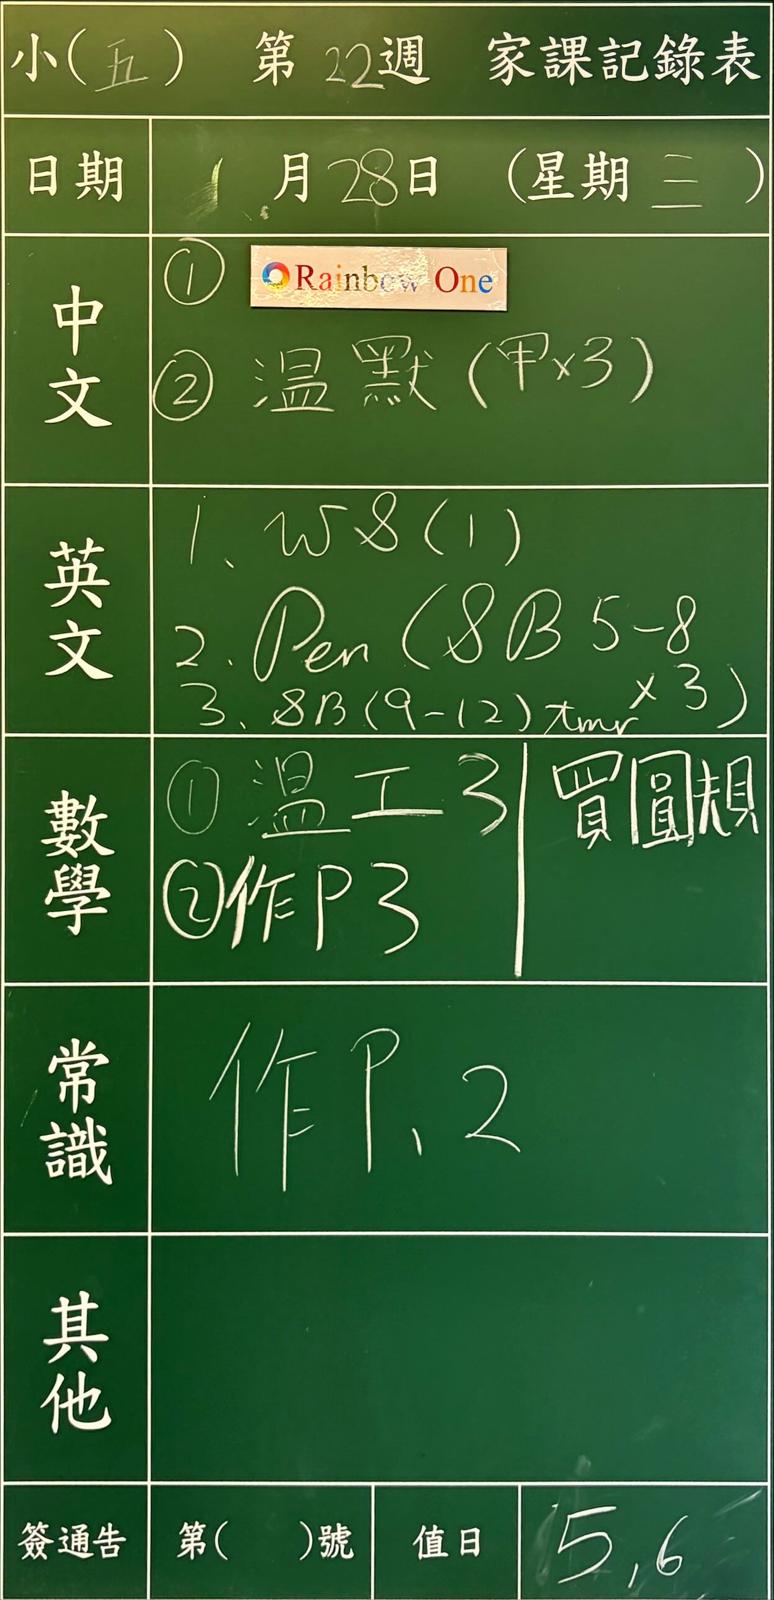 小(五) 第22週 家課記錄表
日期 1月28日 (星期三)
中文
① Rainbow One
② 溫默(甲x3)
英文
1. WS(1)
2. Pen (SB 5-8 x3)
3. SB(9-12) tmr
數學
① 溫工3
② 作P3
買圓規
常識
作P.2
其他
簽通告 第( )號 值日 5,6